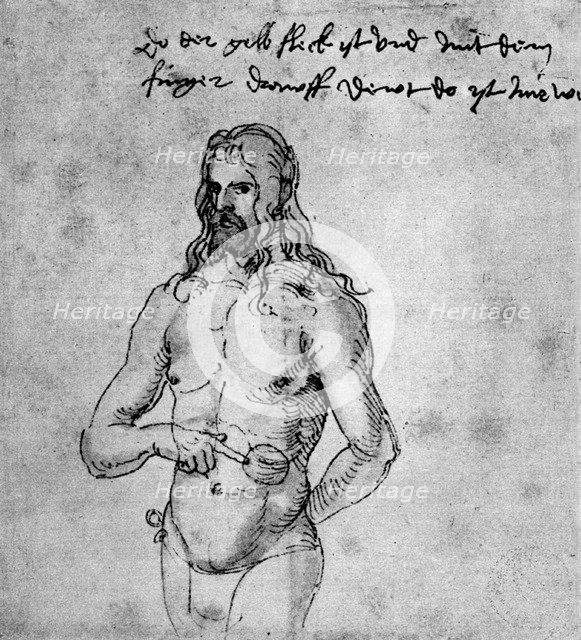 Do der gelb fleck ist und mit dem
finger drawff dewt do ist mir we
Heritage Heritage Heritage
Heritage Heritage Heritage
Heritage Heritage Heritage